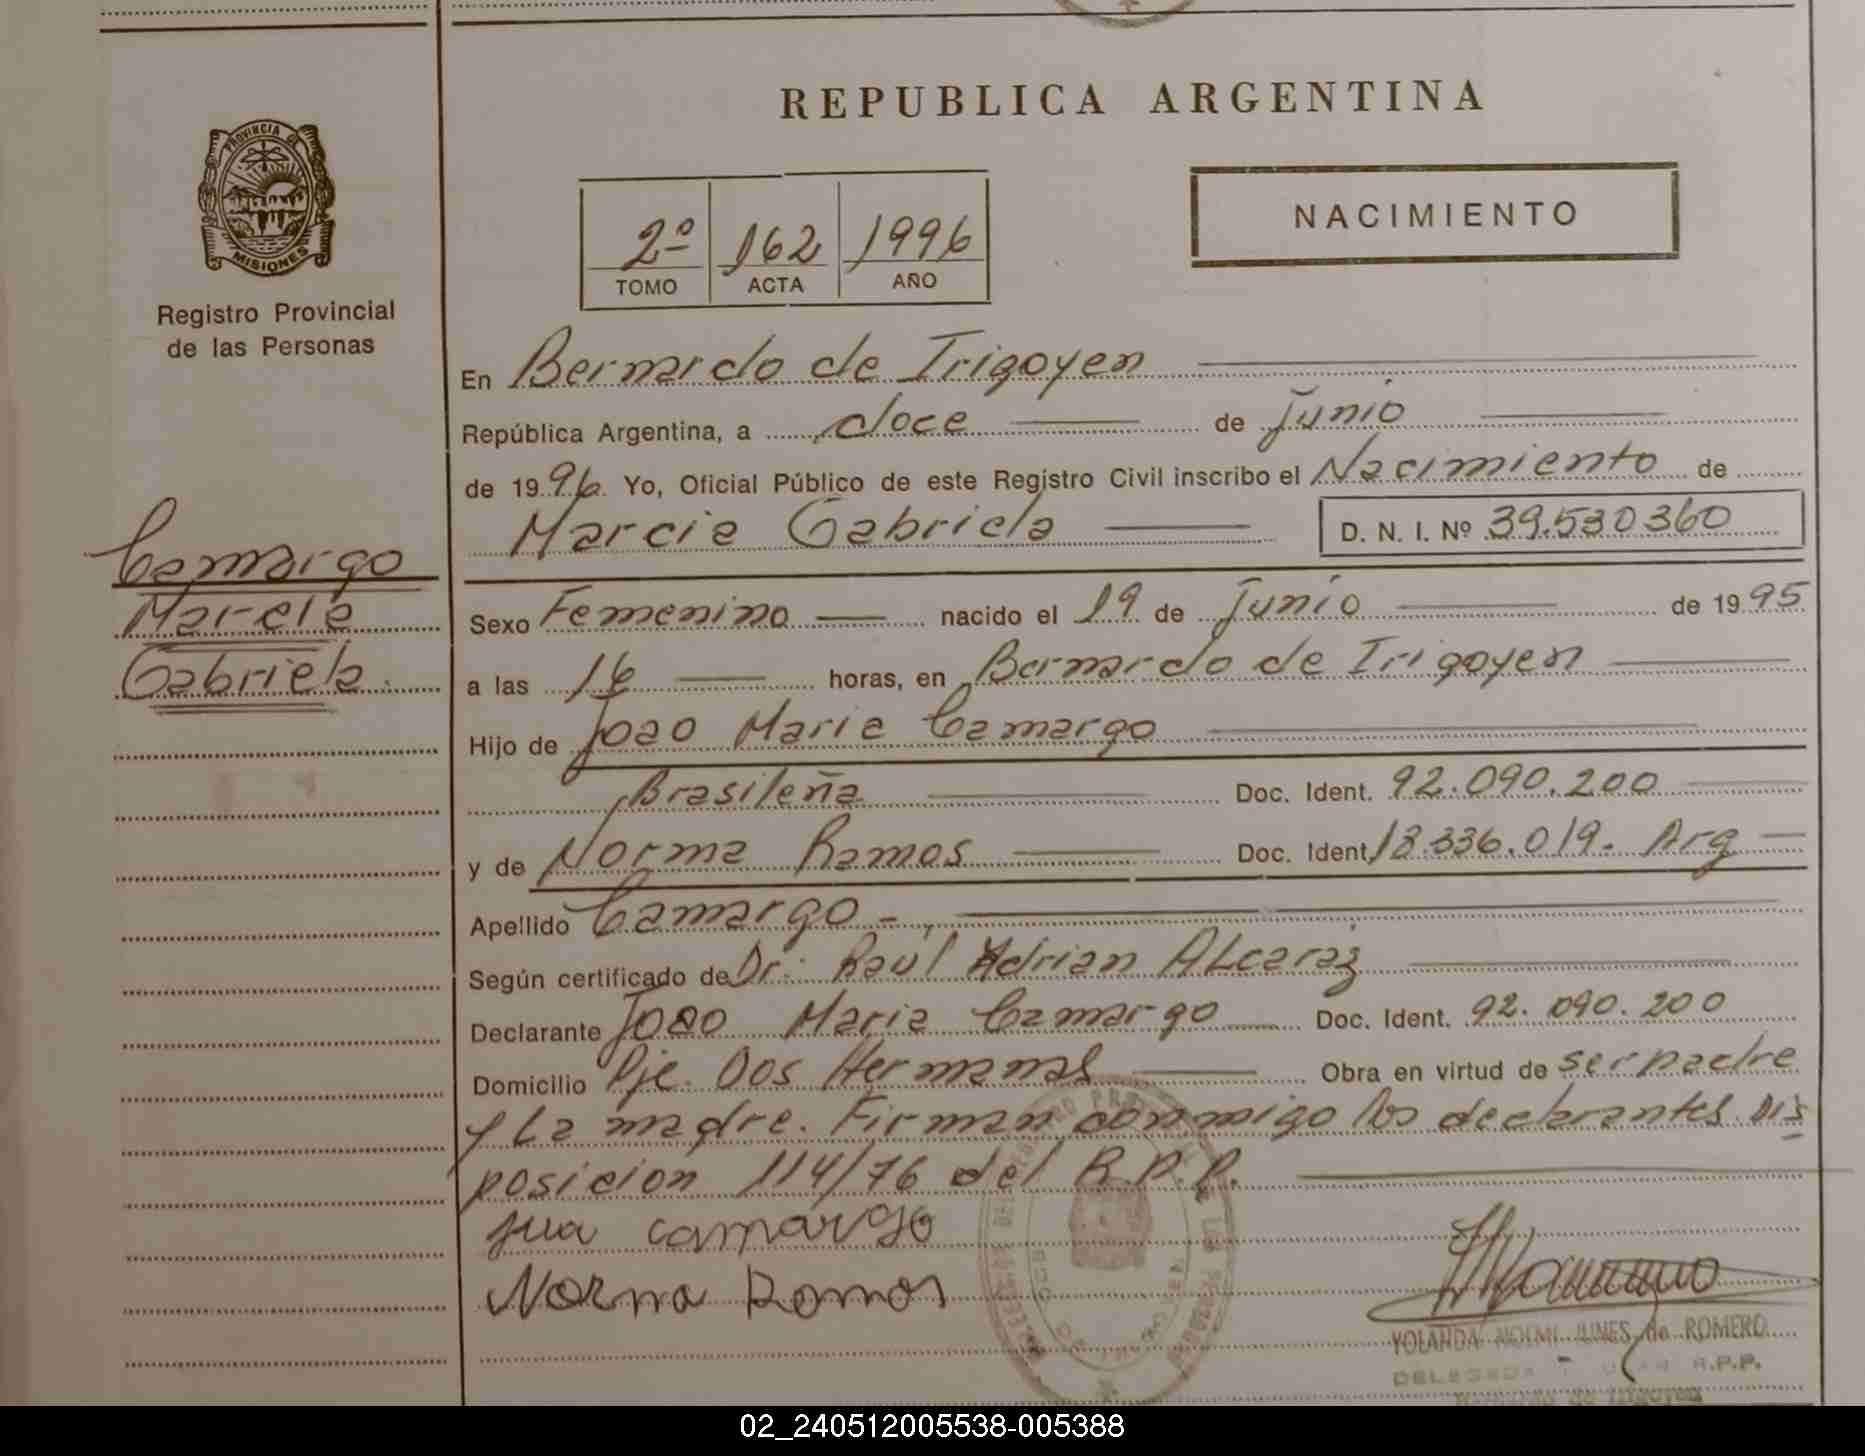 REPUBLICA ARGENTINA
PROVINCIA DE
MISIONES
Registro Provincial
de las Personas
2º 162 1996
TOMO ACTA AÑO
NACIMIENTO
En Bernardo de Irigoyen
República Argentina, a doce de Junio
de 1996. Yo, Oficial Público de este Registro Civil inscribo el Nacimiento de
Marcia Gabriela D. N. I. Nº 39.530360
Camargo
Marcia
Gabriela
Sexo Femenino nacido el 19 de Junio de 1995
a las 16 horas, en Bernardo de Irigoyen
Hijo de Joao Maria Camargo
Brasileña Doc. Ident. 92.090.200
y de Norma Ramos Doc. Ident. 18.336.019. Arg
Apellido Camargo
Según certificado de Dr. Raúl Adrian Alcaraz
Declarante Joao Maria Camargo Doc. Ident. 92.090.200
Domicilio Pje. Dos Hermanas Obra en virtud de ser padre
y La madre. Firman conmigo los declarantes Dis
posicion 114/76 del R.P.P.
camargo
Norma Ramos
YOLANDA NOEMI de ROMERO
DELEGADA R.P.P.
Bernardo de Irigoyen
02_240512005538-005388